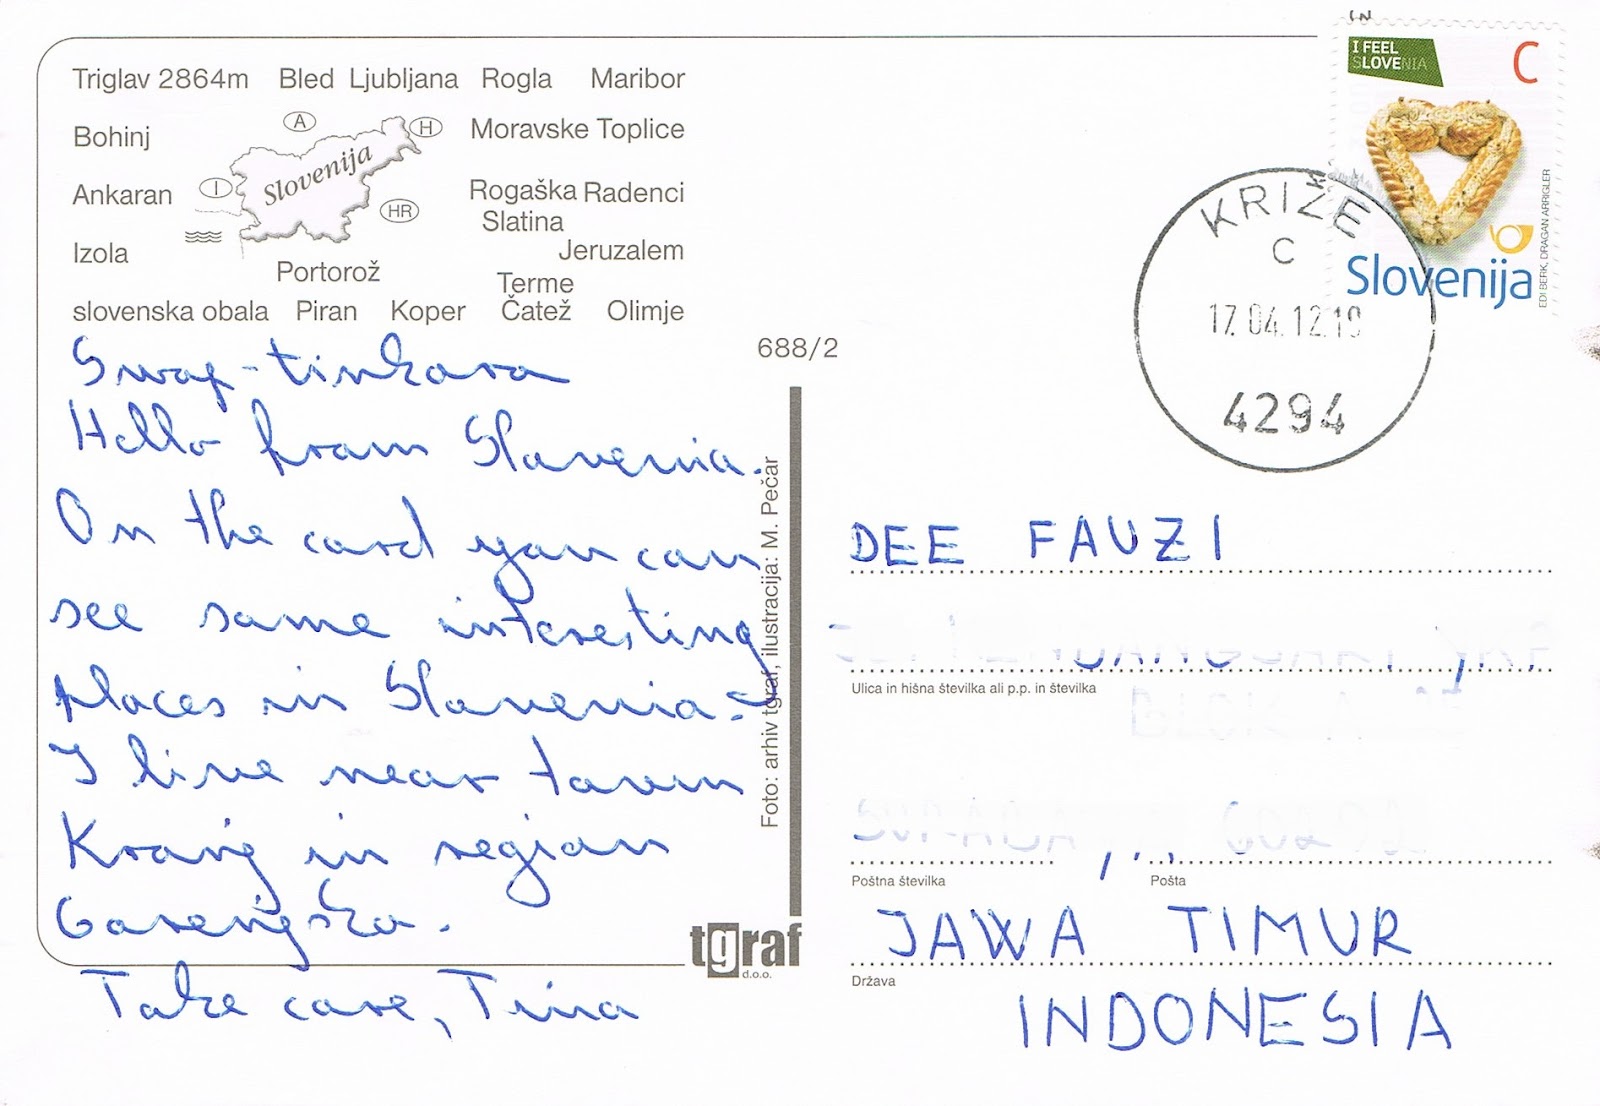 Triglav 2864m Bled Ljubljana Rogla Maribor
Bohinj A H Moravske Toplice
Slovenija
Ankaran I HR Rogaška Slatina Radenci
Izola Jeruzalem
Portorož Terme Čatež
slovenska obala Piran Koper Olimje
688/2
Swap-tinkara
Hello from Slovenia.
On the card you can
see some interesting
places in Slovenia.
I live near town
Kranj in region
Gorenjska.
Take care, Tina
Foto: arhiv tgraf, ilustracija: M. Pečar
tgraf
d.o.o.
IN
I FEEL
SLOVENIA
C
Slovenija
EDI BERK, DRAGAN ARRIGLER
KRIŽE
C
17.04.12.19
4294
DEE FAUZI
Ulica in hišna številka ali p.p. in številka
Poštna številka Pošta
JAWA TIMUR
Država
INDONESIA